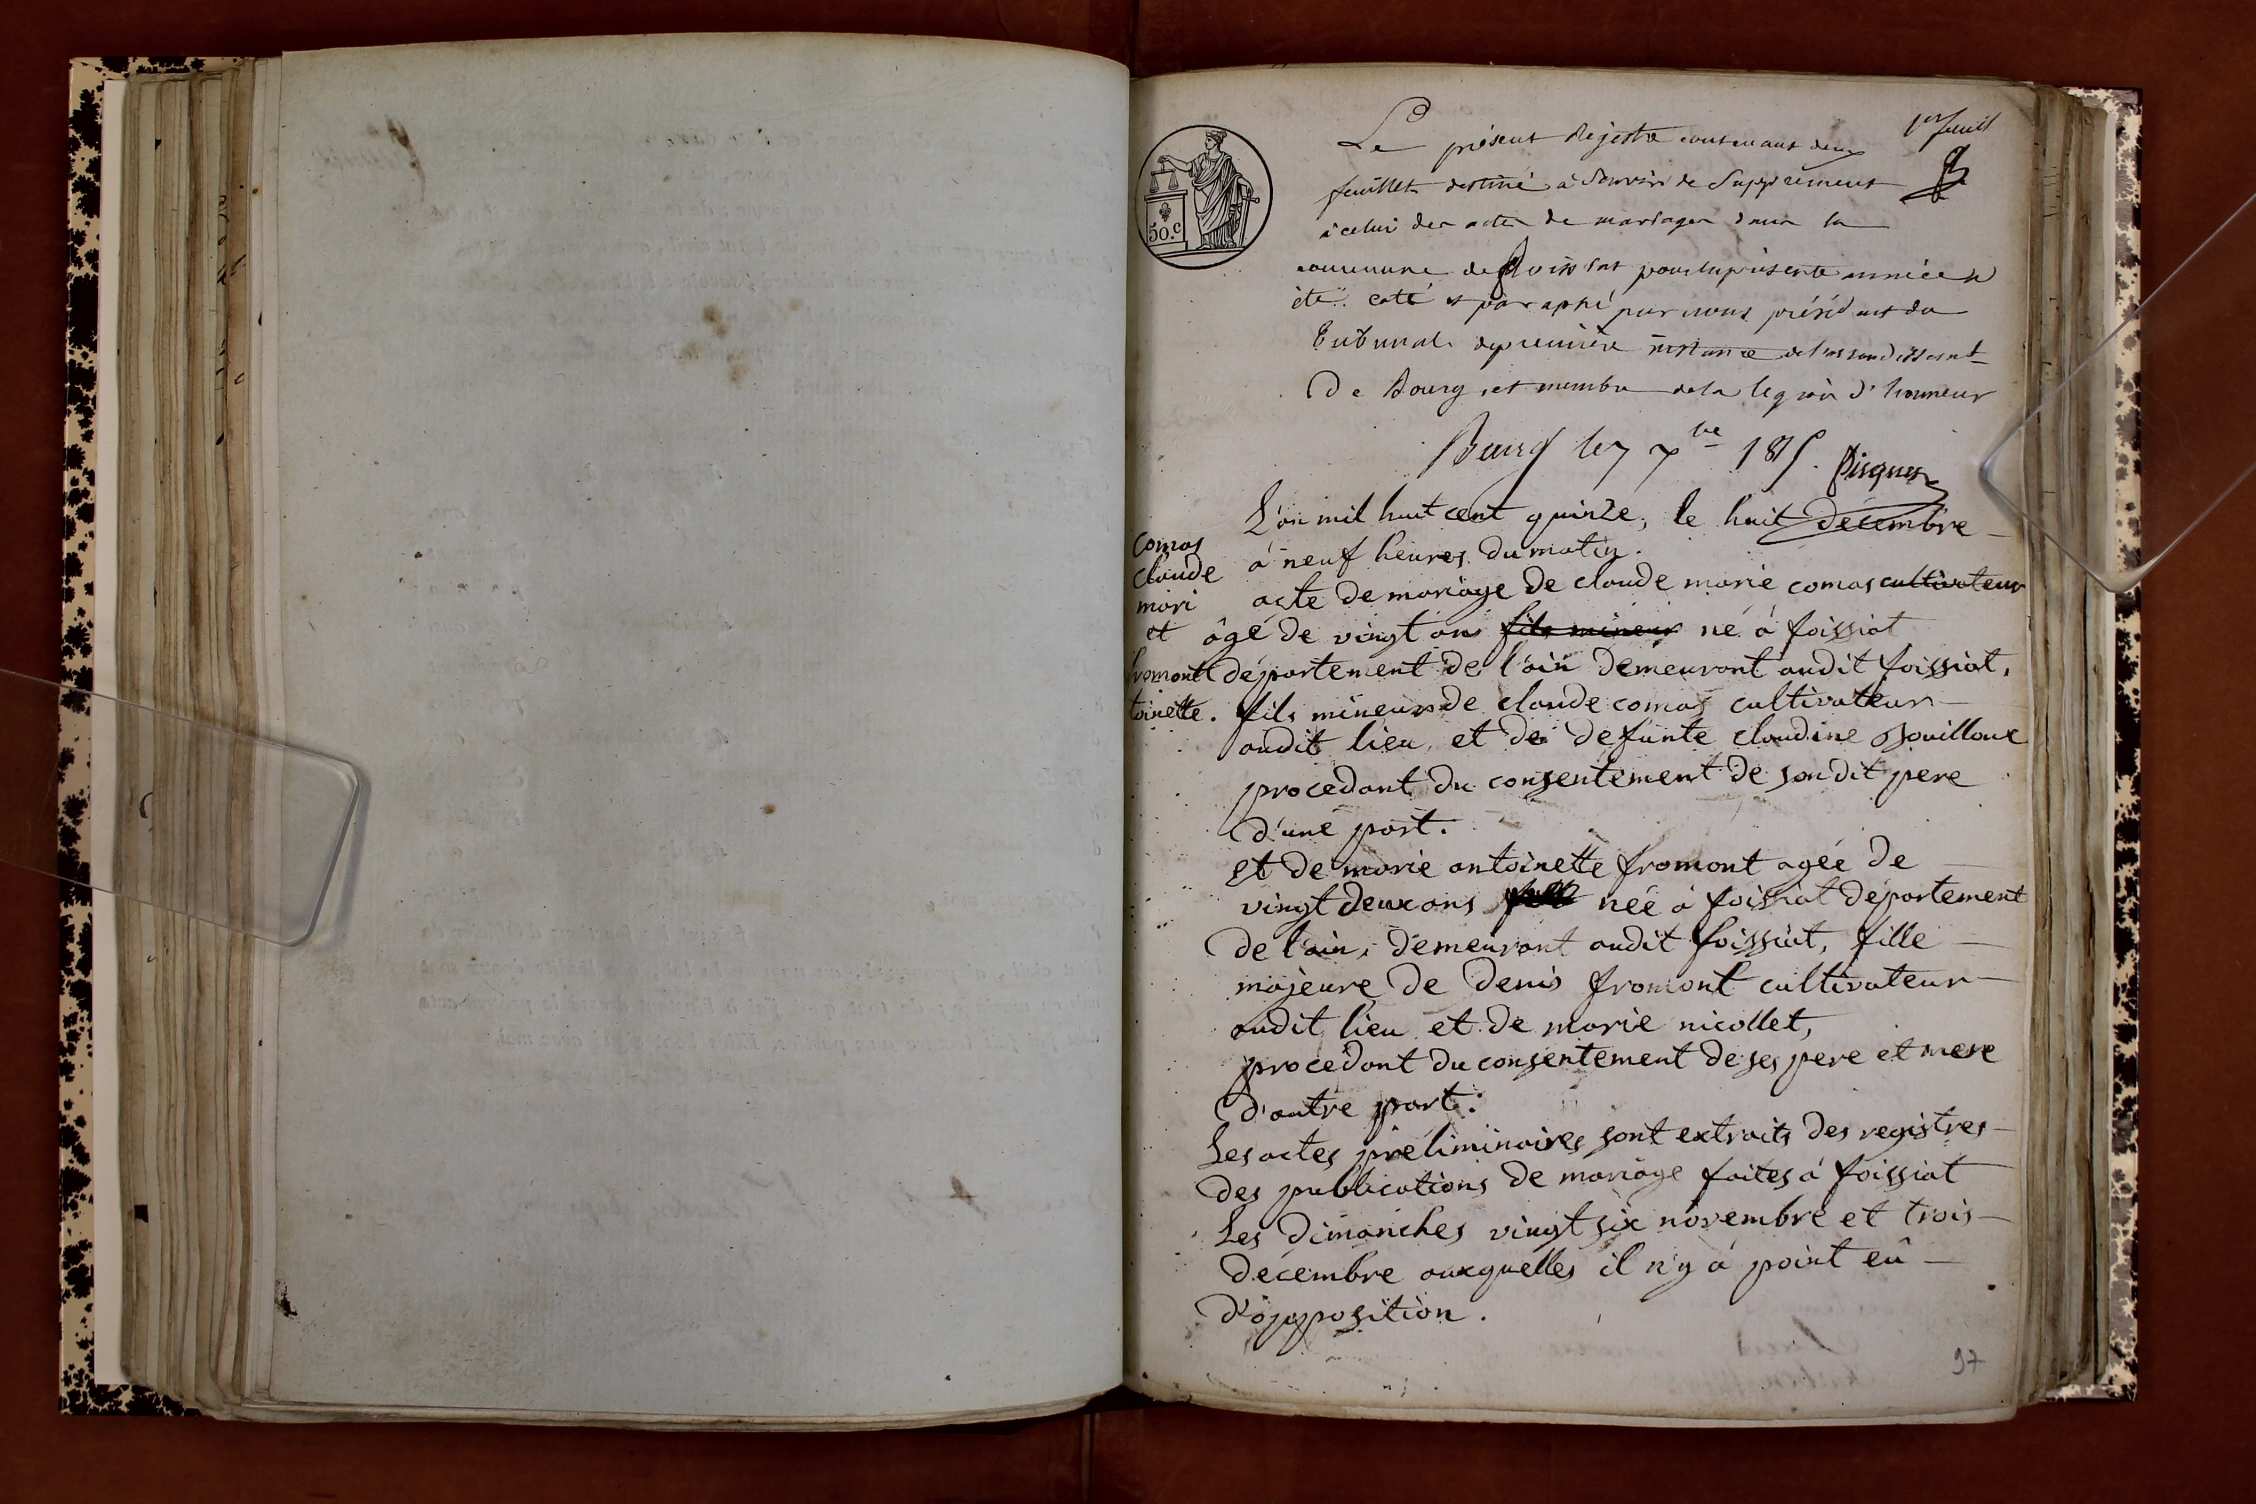 1er feuill
Le présent Rejestre contenant deux
feuillets destiné à Servir de Supplément
à celui des actes de mariages dans la
commune de foissiat pour la présente année a
été coté et paraphé par nous président du
tribunal de première instance de l'arrondissement
De Bourg, et membre de la legion d'honneur
Bourg le 7 Xbre 1815.
50.c
L'an mil huit cent quinze, le huit décembre
à neuf heures du matin.
acte de mariage de claude marie comas cultivateur
âgé de vingt ans fils mineur né à foissiat
département de l'ain demeurant audit foissiat,
fils mineur de claude comas cultivateur
audit lieu, et de defunte claudine Bouilloux
procedant du consentement de son dit pere
d'une part.
et de marie antoinette fromont agée de
vingt deux ans née à foissiat département
de l'ain, demeurant audit foissiat, fille
majeure de denis fromont cultivateur
audit lieu et de marie nicollet,
procedant du consentement de ses pere et mere
d'autre part.
Les actes préliminaires sont extraits des registres
des publications de mariage faites à foissiat
Les dimanches vingt six novembre et trois
décembre auxquelles il n'y a point eû
d'opposition.
comas
claude
mari
et
fromont
toinette.
97